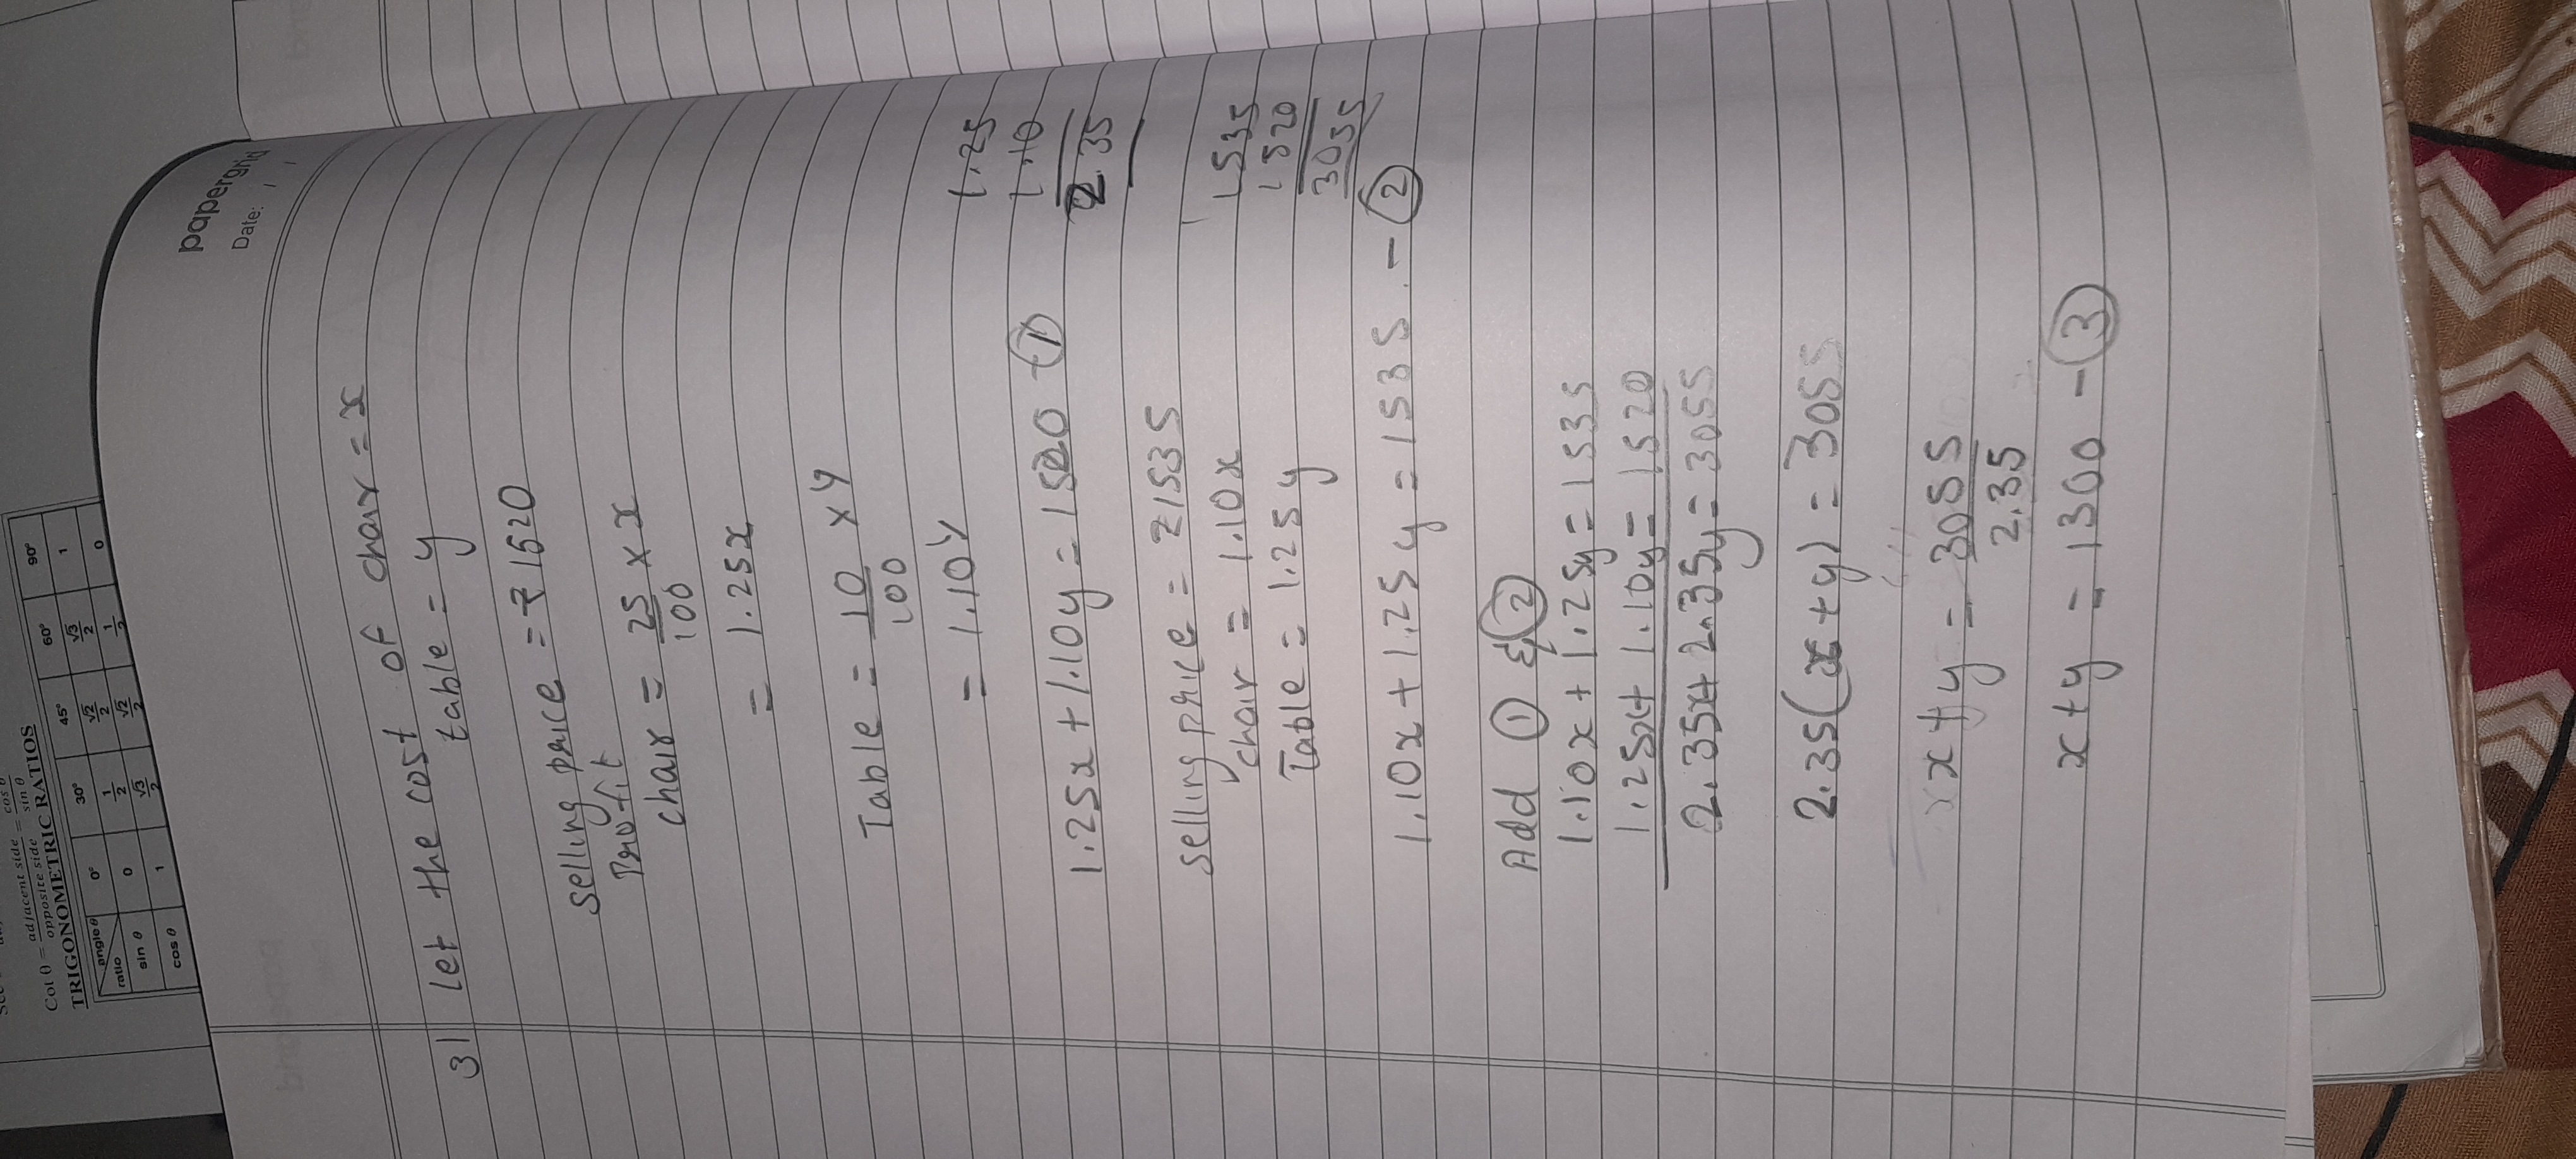 papergrid
Date: / /
3) Let the cost of chair = x
table = y
selling price = ₹1520
Profit
chair = 25/100 × x
= 1.25x
Table = 10/100 × y
= 1.10y
1.25
1.10
2.35
1.25x + 1.10y = 1520 - ①
selling price = ₹1535
chair = 1.10x
Table = 1.25y
1535
1520
3055
1.10x + 1.25y = 1535 - ②
Add ① & ②
1.10x + 1.25y = 1535
1.25x + 1.10y = 1520
2.35x + 2.35y = 3055
2.35(x+y) = 3055
x+y = 3055/2.35
x+y = 1300 - ③
Cot θ = adjacent side/opposite side = cos θ/sin θ
TRIGONOMETRIC RATIOS
angle θ
ratio 0° 30° 45° 60° 90°
sin θ 0 1/2 √2/2 √3/2 1
cos θ 1 √3/2 √2/2 1/2 0